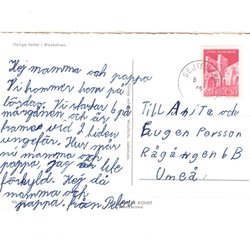 Heliga fallet i Blankaluven
Hej mamma och pappa
Vi kommer hem på
lördag. Vi startar 6 på
morgonen och är
framme vid 2 tiden
ungefär. Hur mår
ni mamma och
pappa, jag är lite
förkyld. Hej då
mamma och
pappa från Peter
SVERIGE 30
Till Anita och
Eugen Persson
Rågången 6B
Umeå
KONST